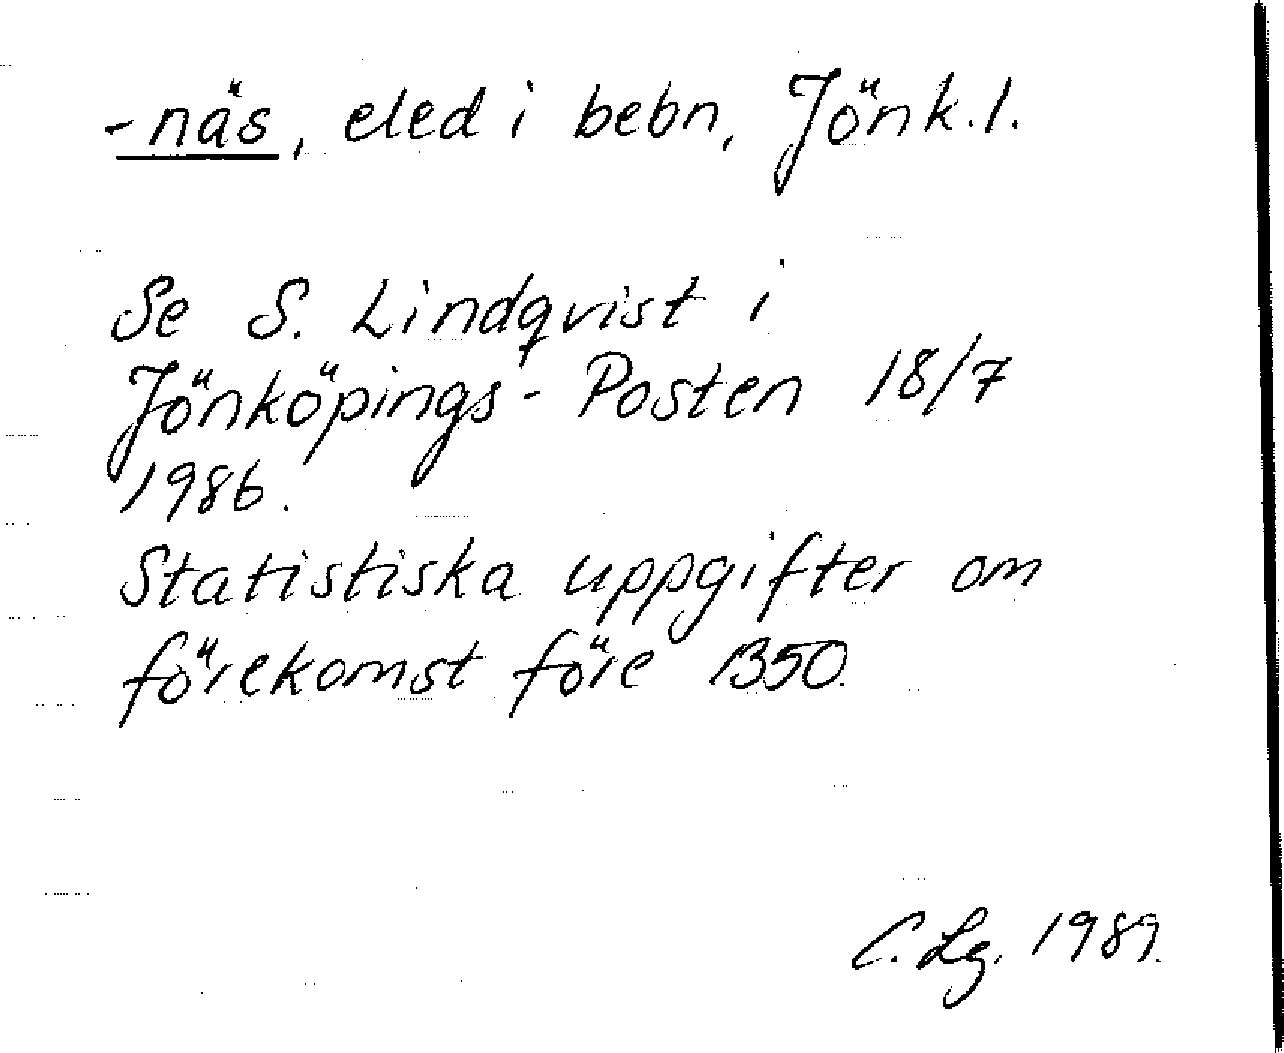 -näs, eled i bebn, Jönk.l.
Se S. Lindqvist i
Jönköpings-Posten 18/7
1986.
Statistiska uppgifter om
förekomst före 1350.
C. Lg. 1989.